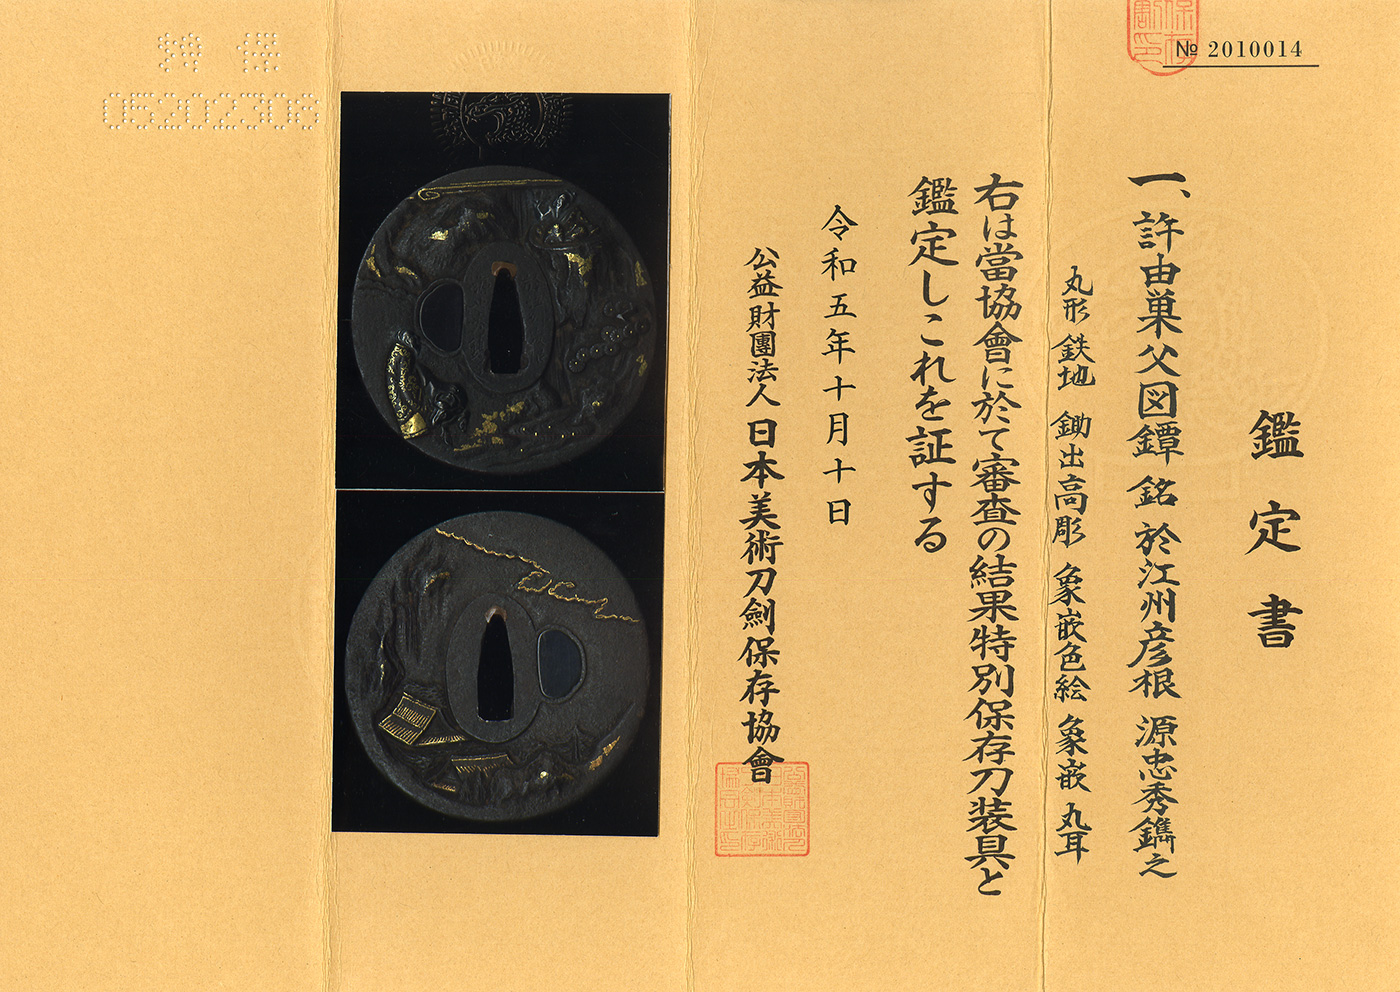 № 2010014
鑑定書
一、許由巣父図鐔 銘 於江州彦根 源忠秀鐫之
丸形 鉄地 鋤出高彫 象嵌色絵 象嵌 丸耳
右は當協會に於て審査の結果特別保存刀装具と
鑑定しこれを証する
令和五年十月十日
公益財團法人 日本美術刀劍保存協會
05202308